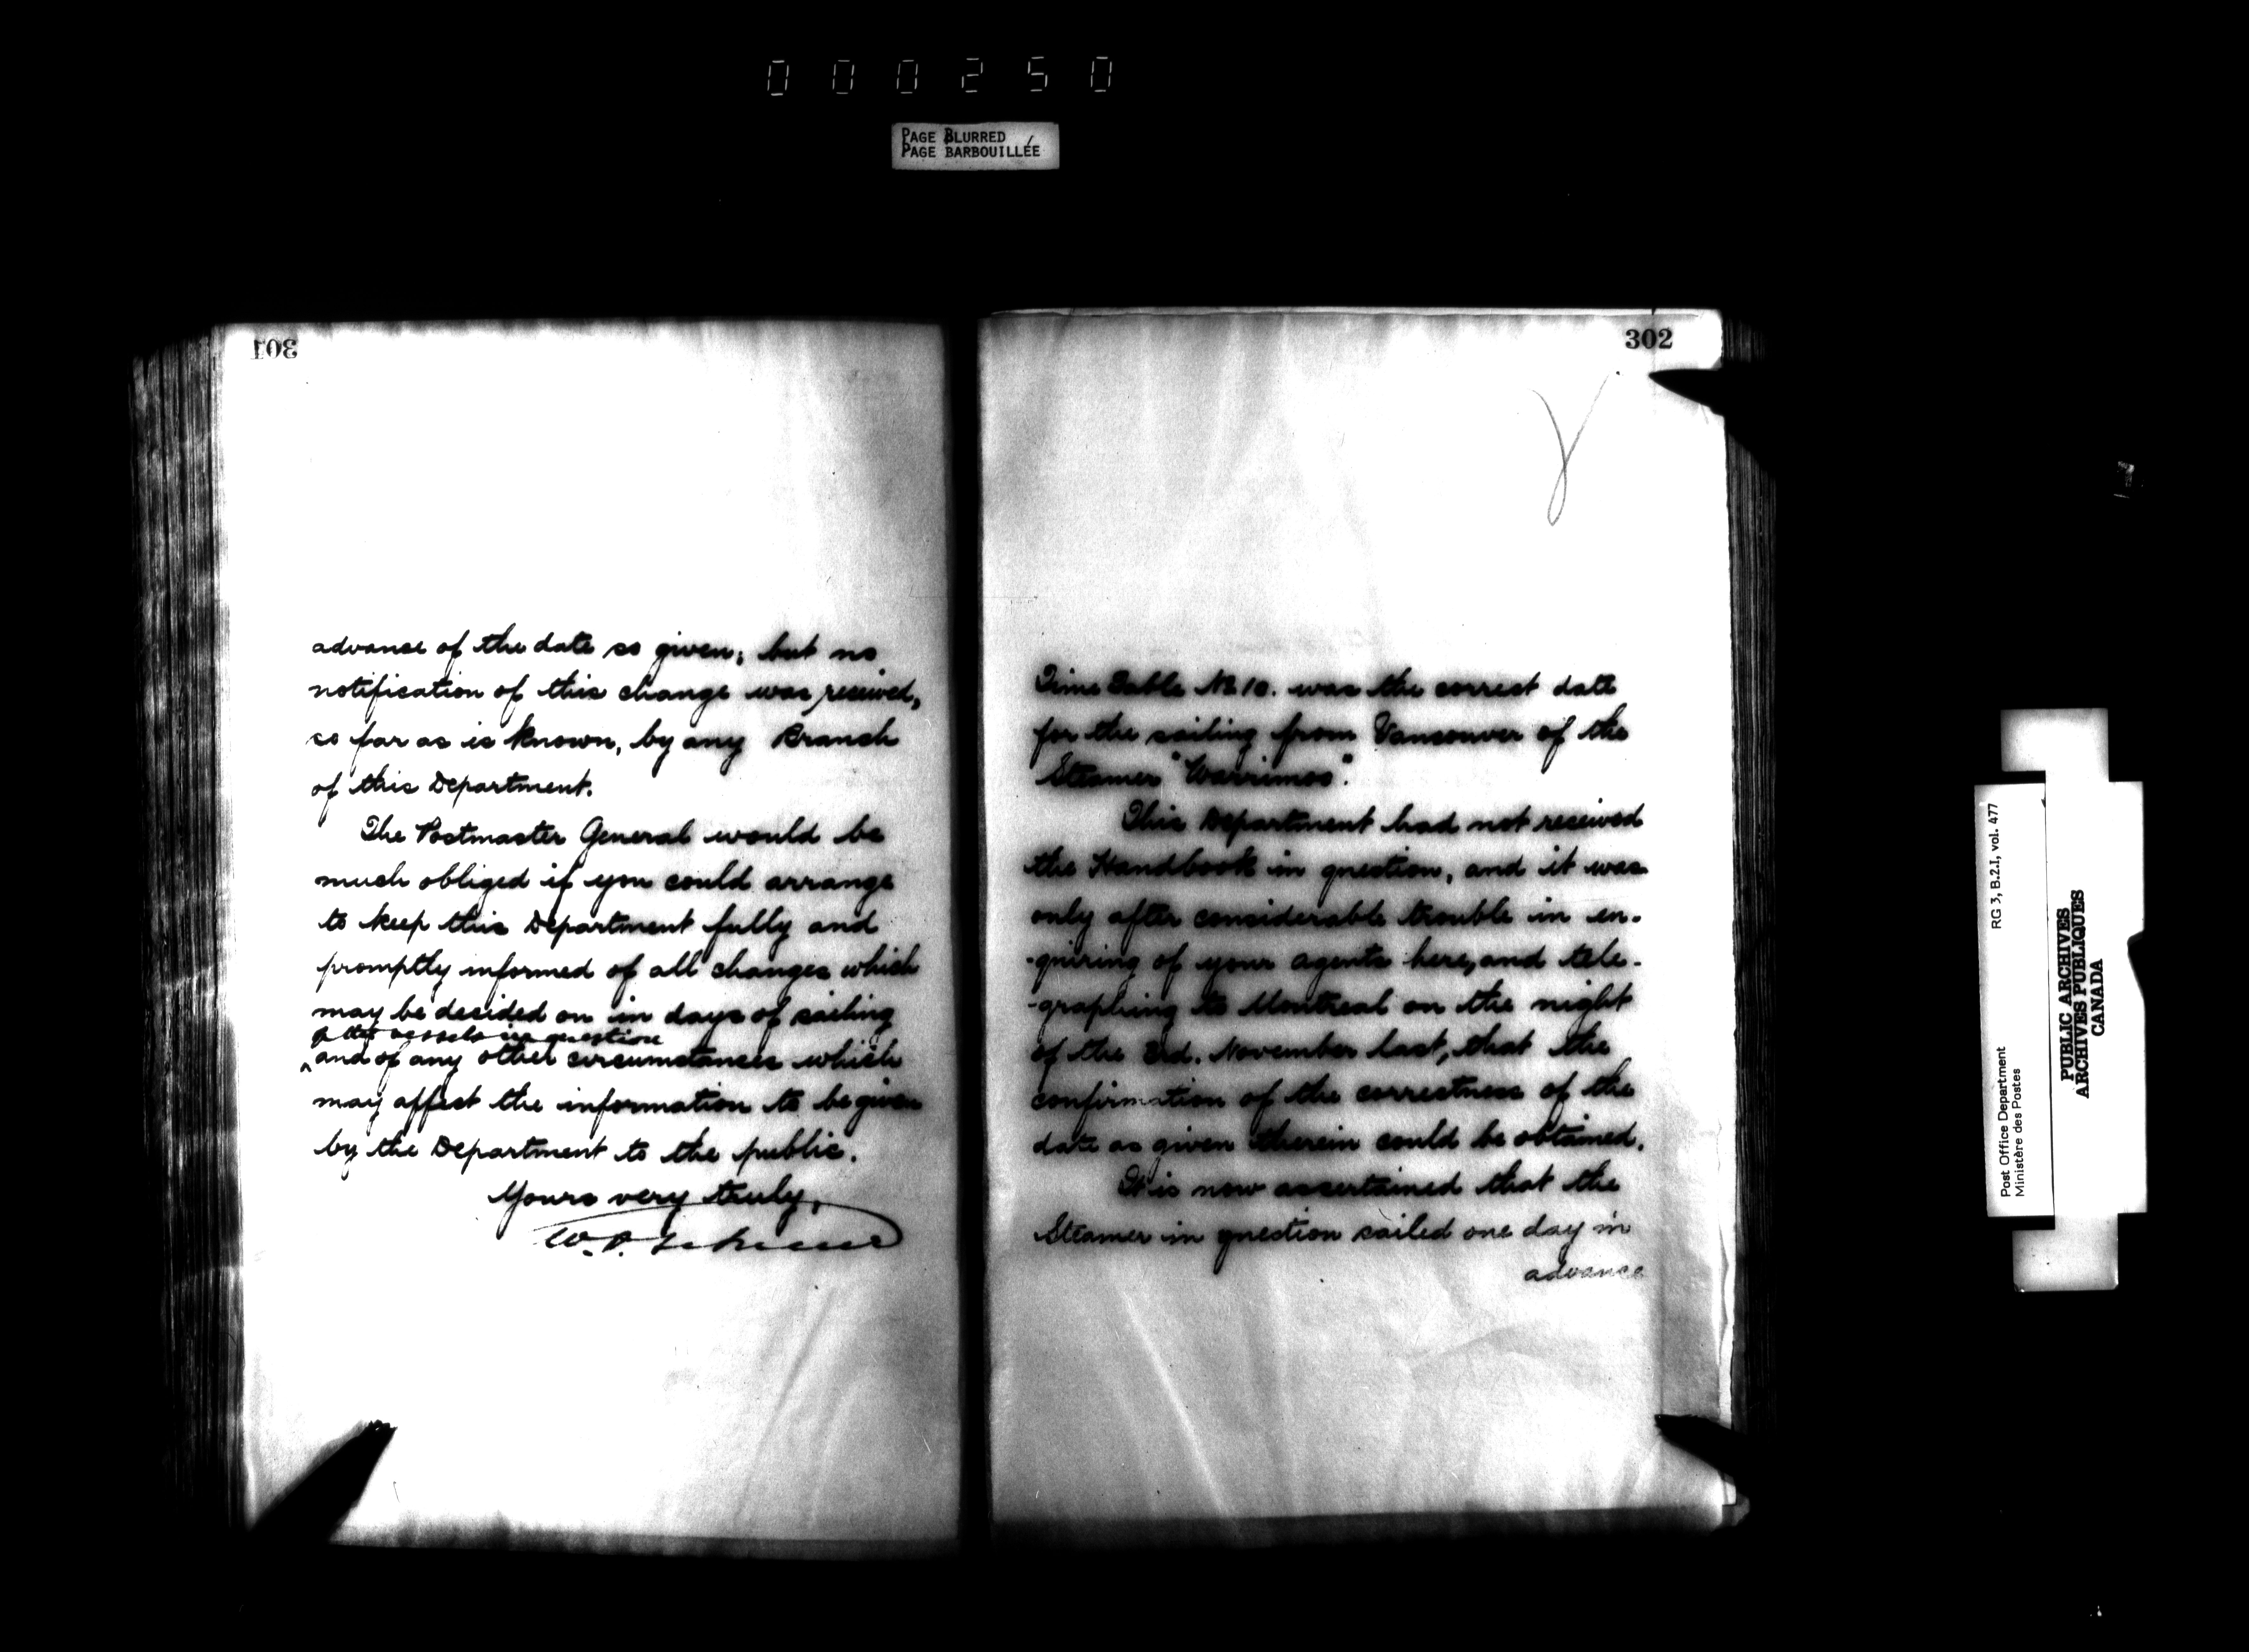 000250
PAGE BLURRED
PAGE BARBOUILLÉE
301
advance of the date so given; but no
notification of this change was received,
so far as is known, by any Branch
of this Department.
The Postmaster General would be
much obliged if you could arrange
to keep this Department fully and
promptly informed of all changes which
may be decided on in days of sailing
of the vessels in question
^and of any other circumstances which
may affect the information to be given
by the Department to the public.
Yours very truly,
W.
302
Time Table No 10. was the correct date
for the sailing from Vancouver of the
Steamer "Warrimoo".
This Department had not received
the Handbook in question, and it was
only after considerable trouble in en-
-quiring of your agents here, and tele-
-graphing to Montreal on the night
of the 3rd. November last, that the
confirmation of the correctness of the
date as given therein could be obtained.
It is now ascertained that the
Steamer in question sailed one day in
advance
RG 3, B.2.I, vol. 477
Post Office Department
Ministère des Postes
PUBLIC ARCHIVES
ARCHIVES PUBLIQUES
CANADA